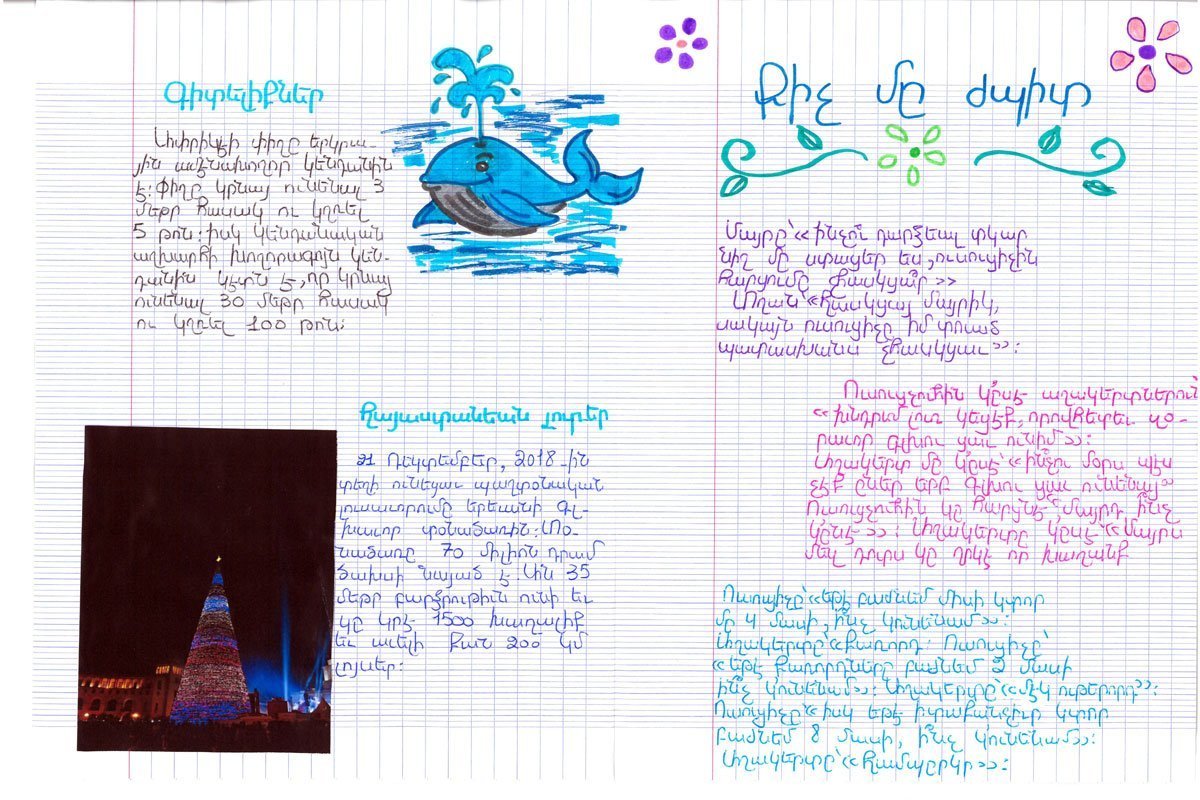 Գիտելիքներ
Ափրիկէի փիղը երկրա-
յին ամենախոշոր կենդանին
է: Փիղը կրնայ ունենալ 3
մեթր հասակ ու կշռել
5 թոն: իսկ կենդանական
աշխարհի խոշորագոյն կեն-
դանին կէտն է, որ կրնայ
ունենալ 30 մեթր հասակ
ու կշռել 100 թոն:
Հայաստանեան լուրեր
21 Դեկտեմբեր, 2018-ին
տեղի ունեցաւ պաշտօնական
լուսաւորումը Երեւանի գլ-
խաւոր տօնածառին: Տօ-
նածառը 70 միլիոն դրամ
ծախսի նայած է: Ան 35
մեթր բարձրութիւն ունի եւ
կը կրէ 1500 խաղալիք
եւ աւելի քան 200 կմ
լոյսեր:
Քիչ մը ժպիտ
Մայրը՝ «ինչո՞ւ դարձեալ տկար
նիշ մը ստացեր ես, ուսուցիչին
հարցումը չհասկցա՞ր»
Տղան՝ «հասկցայ մայրիկ,
սակայն ուսուցիչը իմ տուած
պատասխանս չհասկցաւ»:
Ուսուցչուհին կ՚ըսէ աշակերտներուն
«խնդրեմ լուռ կեցէք, որովհետեւ զօ-
րաւոր գլխու ցաւ ունիմ»:
Աշակերտ մը կ՚ըսէ՝ «ինչու մօրս պէս
չէք ըներ երբ գլխու ցաւ ունենայ»
Ուսուցչուհին կը հարցնէ «մայրդ ի՞նչ
կ՚ընէ»: Աշակերտը կըսէ «մայրս
մեզ դուրս կը ղրկէ որ խաղանք
Ուսուցիչը՝ «եթէ բաժնեմ միսի կտոր
մը 4 մասի, ի՞նչ կունենամ»:
Աշակերտը՝ «քառորդ: Ուսուցիչը՝
«եթէ քառորդները բաժնեմ 2 մասի
ի՞նչ կ՚ունենամ»: Աշակերտը՝ «մէկ ութերորդ»:
Ուսուցիչը՝ «իսկ եթէ իւրաքանչիւր կտոր
բաժնեմ 8 մասի, ի՞նչ կ՚ունենամ»:
Աշակերտը՝ «համպըրկըր»: